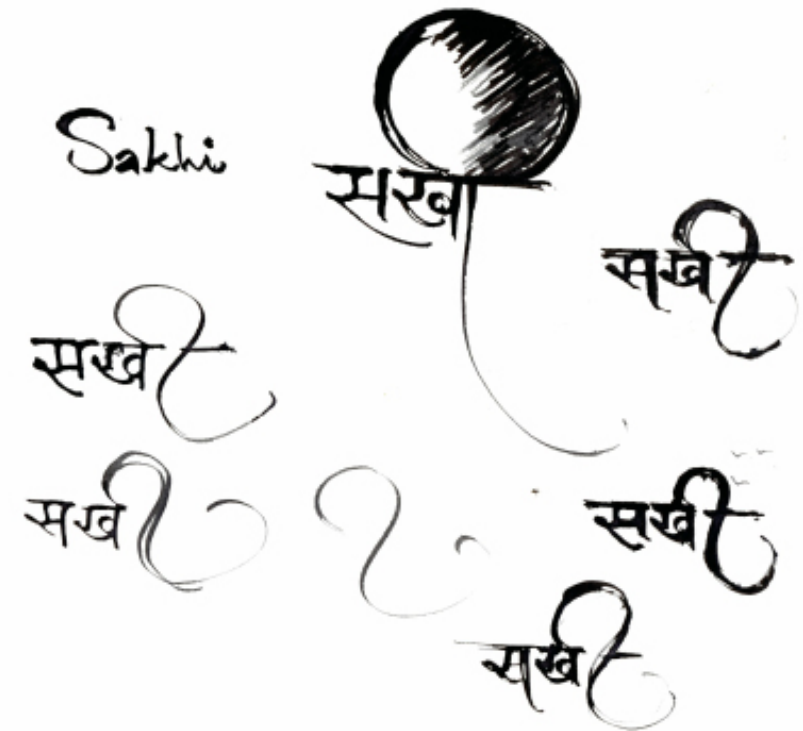 Sakhi
सखी
सखी
सखी
सखी
सखी
सखी